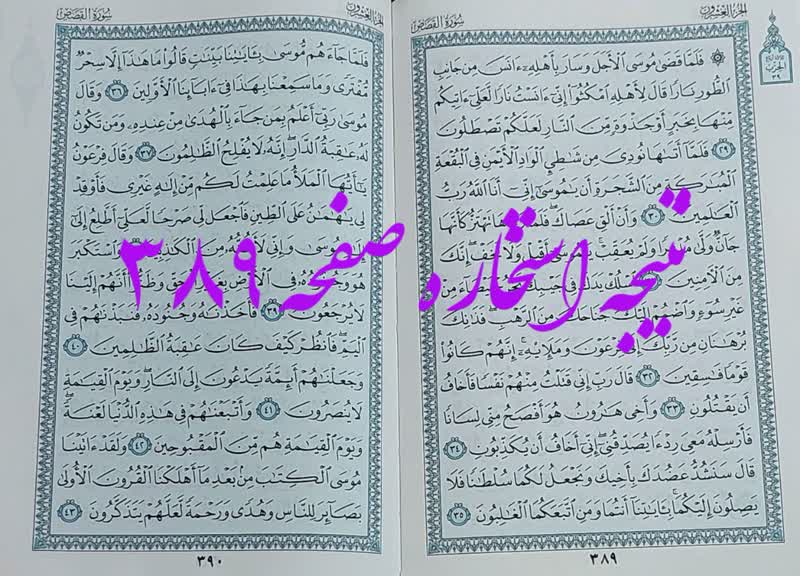 سُورَةُ القَصَصِ
الجُزْءُ العِشْرُونَ
۞ فَلَمَّا قَضَىٰ مُوسَى الْأَجَلَ وَسَارَ بِأَهْلِهِ ءَانَسَ مِن جَانِبِ
الطُّورِ نَارًا قَالَ لِأَهْلِهِ امْكُثُوا إِنِّي ءَانَسْتُ نَارًا لَّعَلِّي ءَاتِيكُم
مِّنْهَا بِخَبَرٍ أَوْ جَذْوَةٍ مِّنَ النَّارِ لَعَلَّكُمْ تَصْطَلُونَ
﴿٢٩﴾ فَلَمَّا أَتَاهَا نُودِيَ مِن شَاطِئِ الْوَادِ الْأَيْمَنِ فِي الْبُقْعَةِ
الْمُبَارَكَةِ مِنَ الشَّجَرَةِ أَن يَا مُوسَىٰ إِنِّي أَنَا اللَّهُ رَبُّ
الْعَالَمِينَ ﴿٣٠﴾ وَأَنْ أَلْقِ عَصَاكَ فَلَمَّا رَءَاهَا تَهْتَزُّ كَأَنَّهَا
جَانٌّ وَلَّىٰ مُدْبِرًا وَلَمْ يُعَقِّبْ يَا مُوسَىٰ أَقْبِلْ وَلَا تَخَفْ إِنَّكَ
مِنَ الْآمِنِينَ ﴿٣١﴾ اسْلُكْ يَدَكَ فِي جَيْبِكَ تَخْرُجْ بَيْضَاءَ مِنْ
غَيْرِ سُوءٍ وَاضْمُمْ إِلَيْكَ جَنَاحَكَ مِنَ الرَّهْبِ فَذَانِكَ
بُرْهَانَانِ مِن رَّبِّكَ إِلَىٰ فِرْعَوْنَ وَمَلَإِيْهِ إِنَّهُمْ كَانُوا
قَوْمًا فَاسِقِينَ ﴿٣٢﴾ قَالَ رَبِّ إِنِّي قَتَلْتُ مِنْهُمْ نَفْسًا فَأَخَافُ
أَن يَقْتُلُونِ ﴿٣٣﴾ وَأَخِي هَارُونُ هُوَ أَفْصَحُ مِنِّي لِسَانًا
فَأَرْسِلْهُ مَعِيَ رِدْءًا يُصَدِّقُنِي إِنِّي أَخَافُ أَن يُكَذِّبُونِ ﴿٣٤﴾
قَالَ سَنَشُدُّ عَضُدَكَ بِأَخِيكَ وَنَجْعَلُ لَكُمَا سُلْطَانًا فَلَا
يَصِلُونَ إِلَيْكُمَا بِآيَاتِنَا أَنتُمَا وَمَنِ اتَّبَعَكُمَا الْغَالِبُونَ ﴿٣٥﴾
٣٨٩
سُورَةُ القَصَصِ
الجُزْءُ العِشْرُونَ
فَلَمَّا جَاءَهُم مُّوسَىٰ بِآيَاتِنَا بَيِّنَاتٍ قَالُوا مَا هَٰذَا إِلَّا سِحْرٌ
مُّفْتَرًى وَمَا سَمِعْنَا بِهَٰذَا فِي ءَابَائِنَا الْأَوَّلِينَ ﴿٣٦﴾ وَقَالَ
مُوسَىٰ رَبِّي أَعْلَمُ بِمَن جَاءَ بِالْهُدَىٰ مِنْ عِندِهِ وَمَن تَكُونُ
لَهُ عَاقِبَةُ الدَّارِ إِنَّهُ لَا يُفْلِحُ الظَّالِمُونَ ﴿٣٧﴾ وَقَالَ فِرْعَوْنُ
يَا أَيُّهَا الْمَلَأُ مَا عَلِمْتُ لَكُم مِّنْ إِلَٰهٍ غَيْرِي فَأَوْقِدْ
لِي يَا هَامَانُ عَلَى الطِّينِ فَاجْعَل لِّي صَرْحًا لَّعَلِّي أَطَّلِعُ إِلَىٰ
إِلَٰهِ مُوسَىٰ وَإِنِّي لَأَظُنُّهُ مِنَ الْكَاذِبِينَ ﴿٣٨﴾ وَاسْتَكْبَرَ
هُوَ وَجُنُودُهُ فِي الْأَرْضِ بِغَيْرِ الْحَقِّ وَظَنُّوا أَنَّهُمْ إِلَيْنَا
لَا يُرْجَعُونَ ﴿٣٩﴾ فَأَخَذْنَاهُ وَجُنُودَهُ فَنَبَذْنَاهُمْ فِي
الْيَمِّ فَانظُرْ كَيْفَ كَانَ عَاقِبَةُ الظَّالِمِينَ ﴿٤٠﴾
وَجَعَلْنَاهُمْ أَئِمَّةً يَدْعُونَ إِلَى النَّارِ وَيَوْمَ الْقِيَامَةِ
لَا يُنصَرُونَ ﴿٤١﴾ وَأَتْبَعْنَاهُمْ فِي هَٰذِهِ الدُّنْيَا لَعْنَةً
وَيَوْمَ الْقِيَامَةِ هُم مِّنَ الْمَقْبُوحِينَ ﴿٤٢﴾ وَلَقَدْ ءَاتَيْنَا
مُوسَى الْكِتَابَ مِن بَعْدِ مَا أَهْلَكْنَا الْقُرُونَ الْأُولَىٰ
بَصَائِرَ لِلنَّاسِ وَهُدًى وَرَحْمَةً لَّعَلَّهُمْ يَتَذَكَّرُونَ ﴿٤٣﴾
٣٩٠
نتیجه استخاره صفحه ۳۸۹